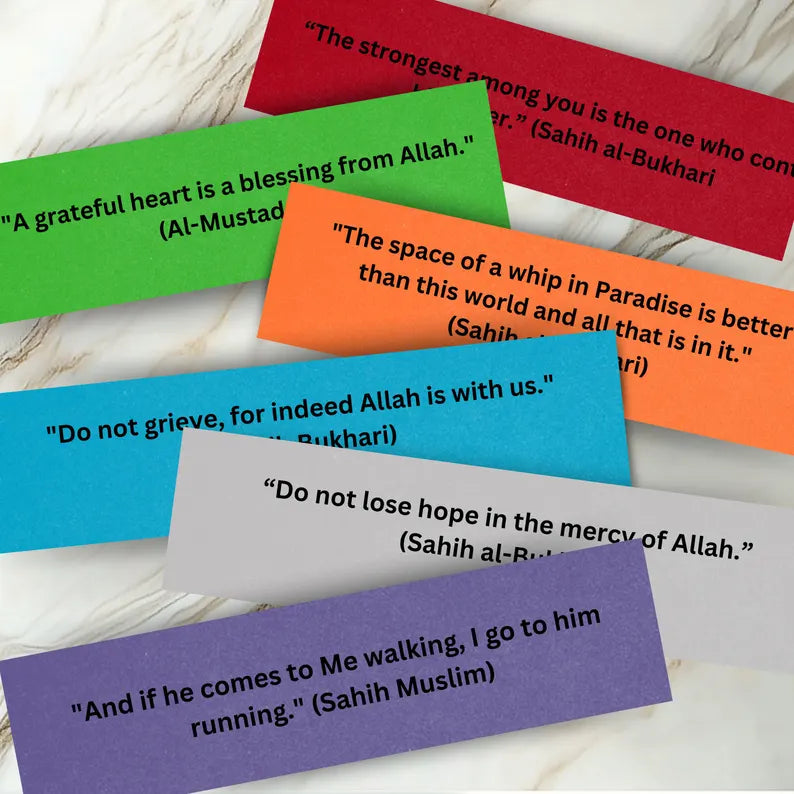 “The strongest among you is the one who
er.” (Sahih al-Bukhari
"A grateful heart is a blessing from Allah."
(Al-Mustad
"The space of a whip in Paradise is better
than this world and all that is in it."
(Sahih ari)
"Do not grieve, for indeed Allah is with us."
Bukhari)
“Do not lose hope in the mercy of Allah.”
(Sahih al-Bu
"And if he comes to Me walking, I go to him
running." (Sahih Muslim)